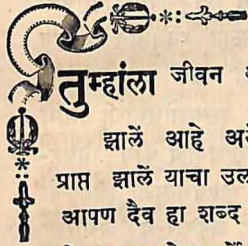 तुम्हांला जीवन
झालें आहे
प्राप्त झालें याचा
आपण दैव हा शब्द